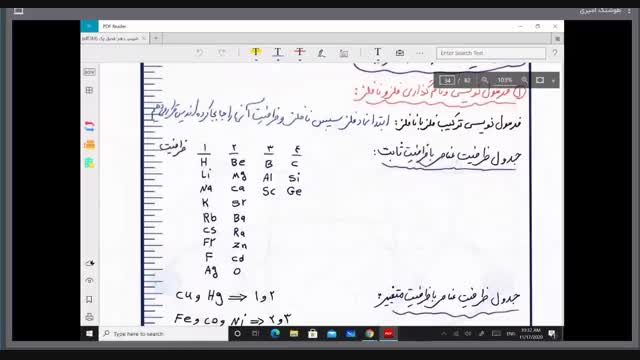 هوشنگ امیری
PDF Reader
شیمی دهم فصل یک (1).pdf
Enter Search Text
34 / 82 103%
① فرمول نویسی و نام گذاری فلز و نافلز:
فرمول نویسی ترکیب فلز با نافلز: ابتدا نماد فلز سپس نافلز و ظرفیت آن را جابجا کرده
جدول ظرفیت عناصر با ظرفیت ثابت:
ظرفیت ۱ ۲ ۳ ۴
H Be B C
Li Mg Al Si
Na Ca Sc Ge
K Sr
Rb Ba
Cs Ra
Fr Zn
F Cd
Ag O
جدول ظرفیت عناصر با ظرفیت متغییر:
Cu و Hg ⟹ ۱ و ۲
Fe و Co و Ni ⟹ ۲ و ۳
Type here to search
ENG
10:37 AM
11/17/2020